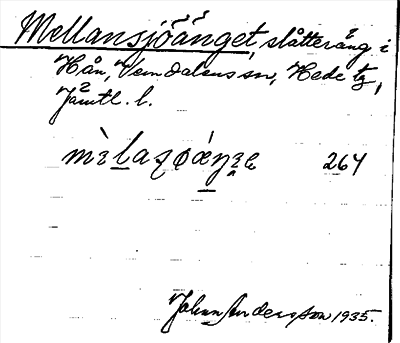 Mellansjöänget, slåtteräng i
Hån, Vemdalens sn, Hede tg,
Jämtl. l.
264
Johan Andersson 1935.